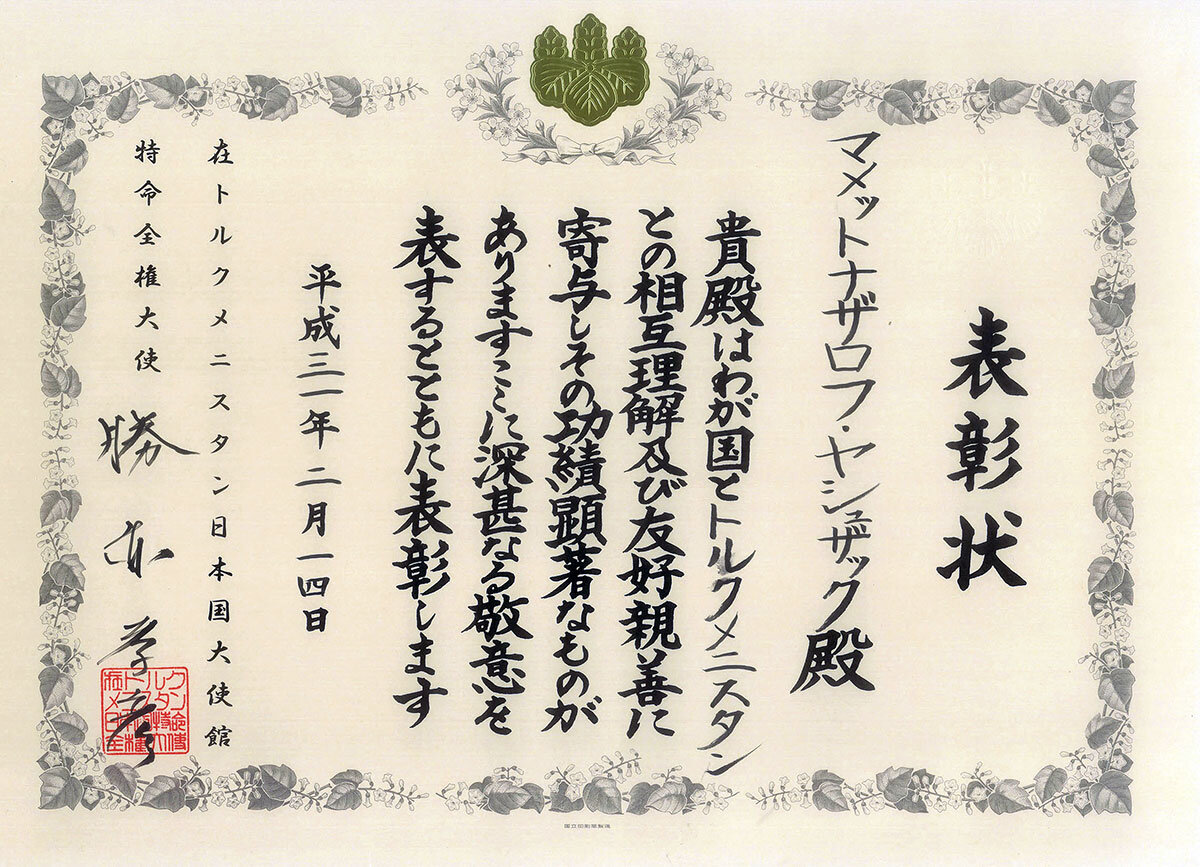 表彰状
マメットナザロフ・ヤシュザック殿
貴殿はわが国とトルクメニスタン
との相互理解及び友好親善に
寄与しその功績顕著なものが
ありますここに深甚なる敬意を
表するとともに表彰します
平成三一年二月一四日
在トルクメニスタン日本国大使館
特命全権大使
勝亦孝彦
国立印刷局製造